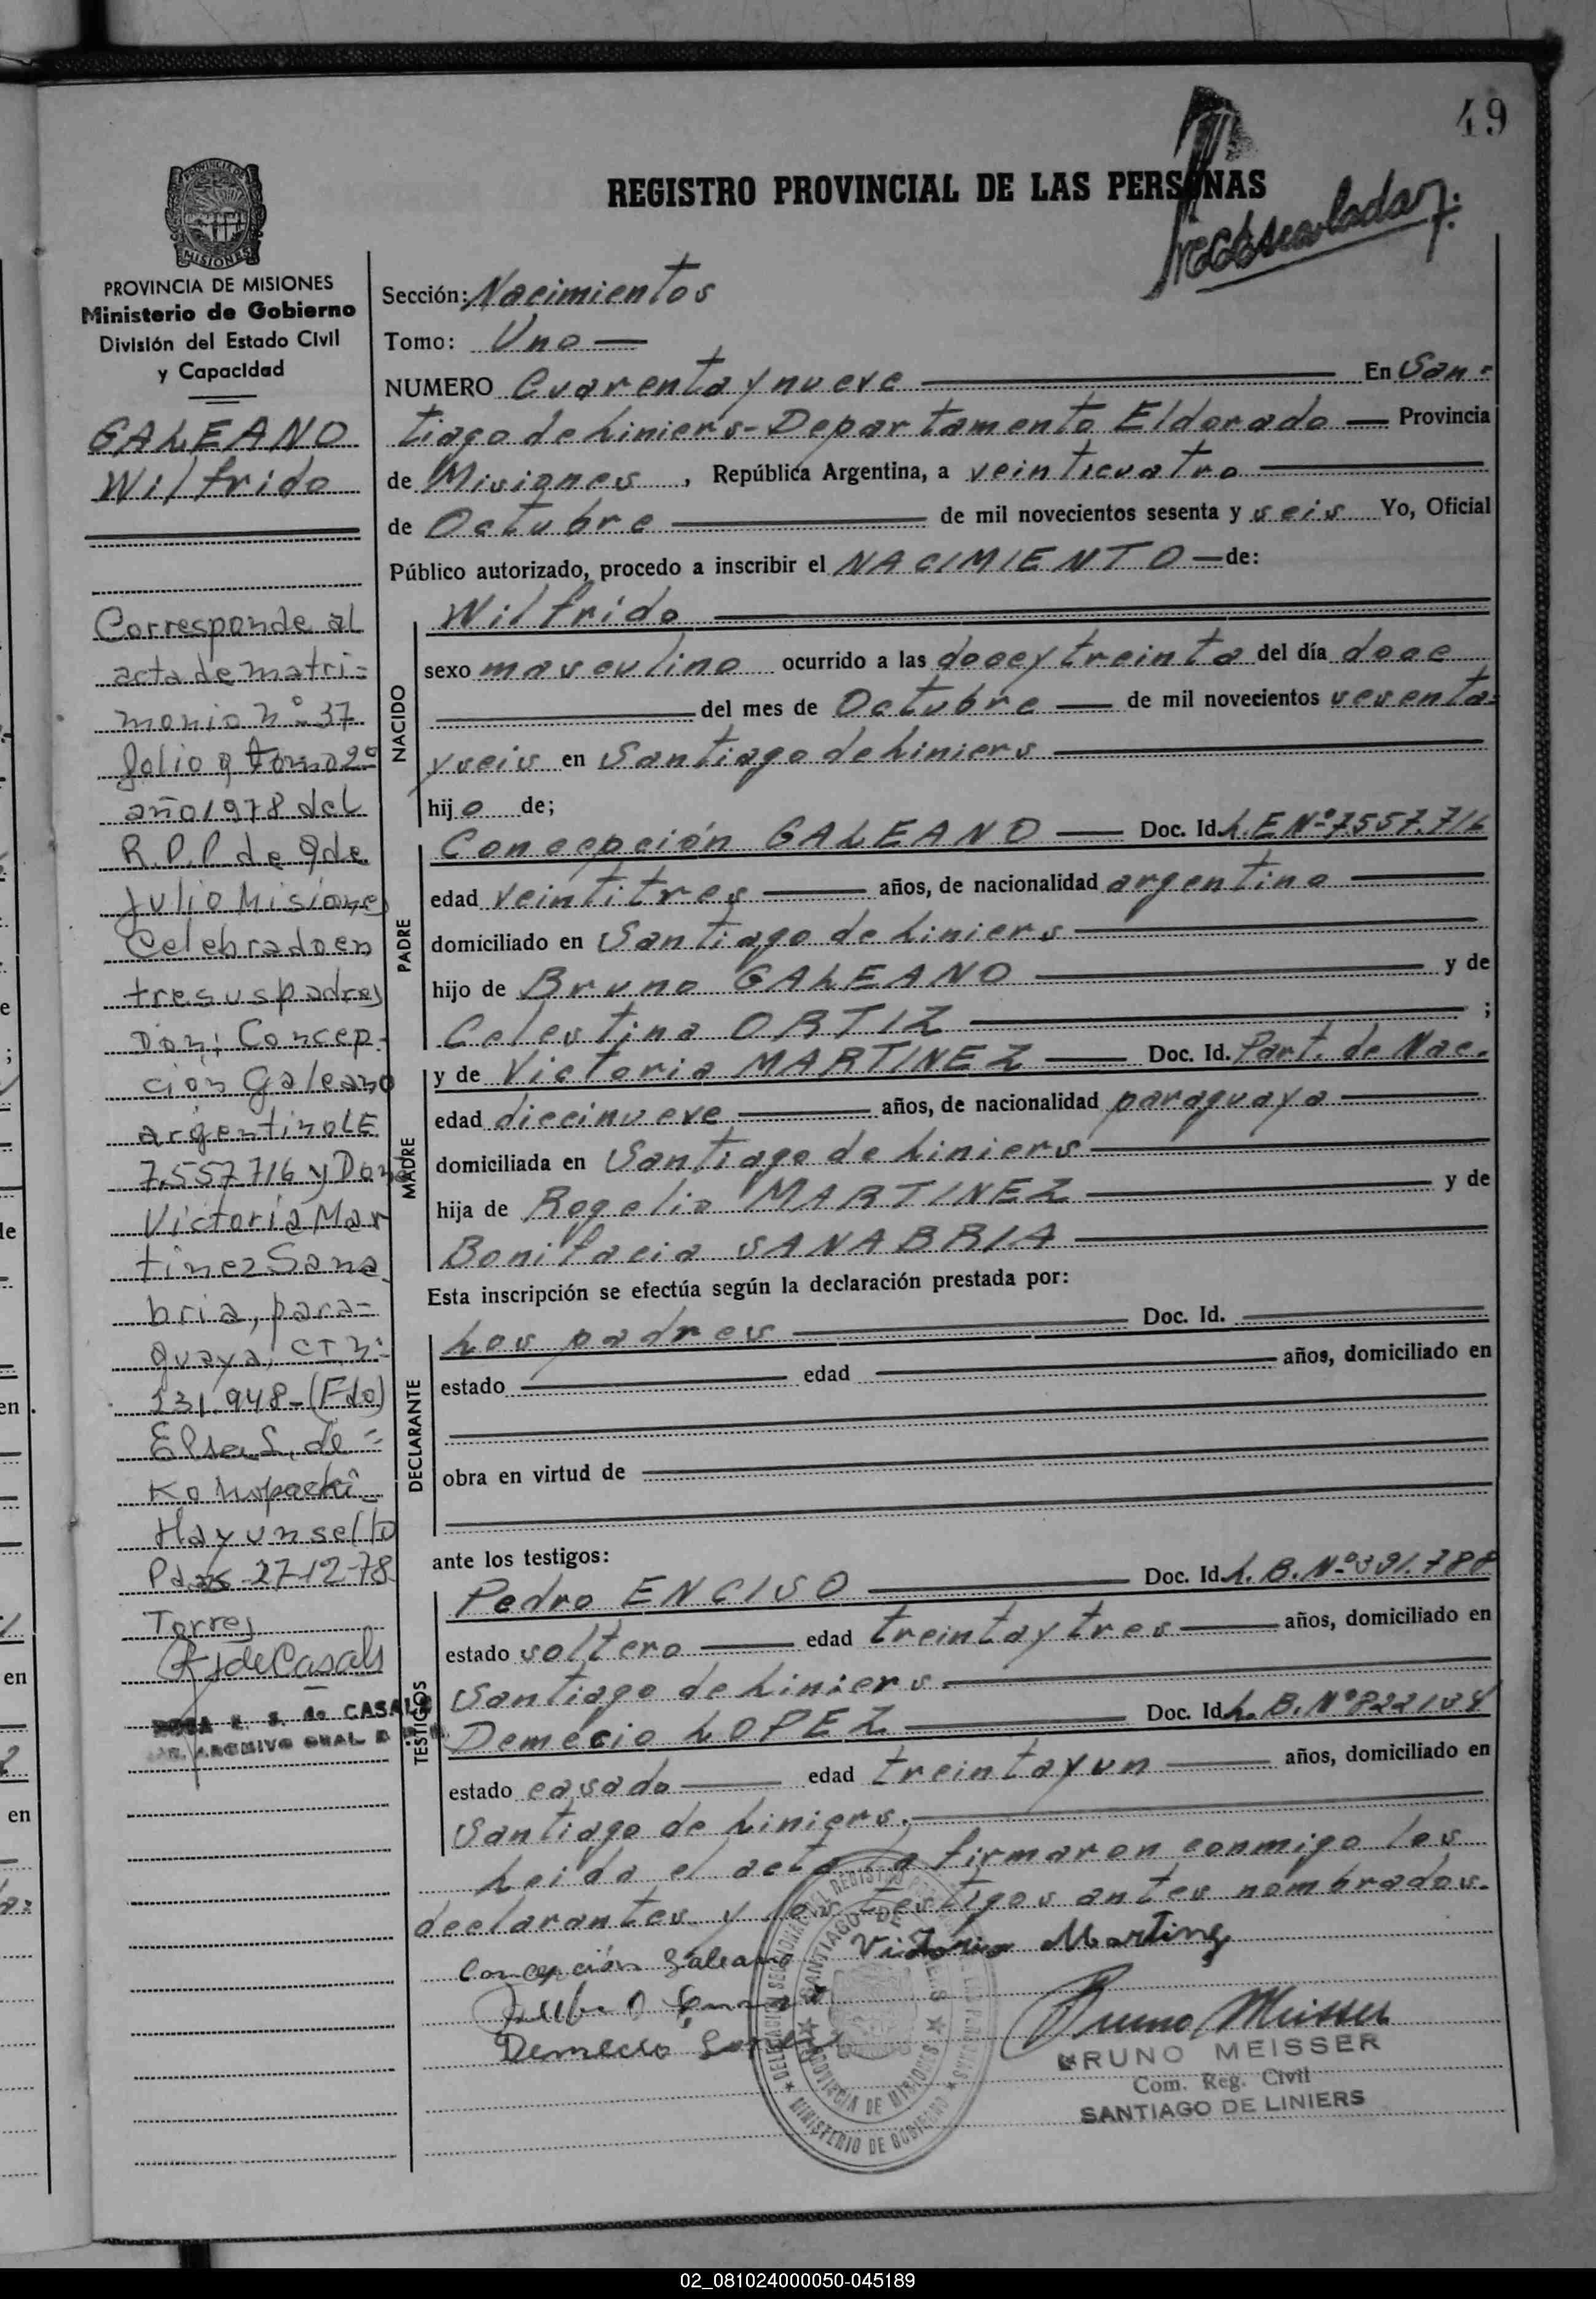 49
REGISTRO PROVINCIAL DE LAS PERSONAS
PROVINCIA DE MISIONES
Ministerio de Gobierno
División del Estado Civil
y Capacidad
GALEANO
Wilfrido
Corresponde al
acta de matri=
monio nº 37
folio 9 tomo 2º
año 1978 del
R.P.P de 9 de
Julio Misiones
Celebrado en
tre sus padres
Don: Concep-
ción Galeano
argentino LE
7.557716 y Doña
Victoria Mar
tinez Sana
bria, para=
guaya, CI, nº
231.948-(Fdo)
Elsa S. de =
Hay un sello
Pdas 27-12-78
Torres
R J de Casals
ROSA E. S. de CASALS
ARCHIVO GRAL
Sección: Nacimientos
Tomo: Uno
NUMERO Cuarenta y nueve En San=
tiago de Liniers-Departamento Eldorado Provincia
de Misiones, República Argentina, a veinticuatro
de Octubre de mil novecientos sesenta y seis Yo, Oficial
Público autorizado, procedo a inscribir el NACIMIENTO de:
NACIDO
Wilfrido
sexo masculino ocurrido a las doce y treinta del día doce
del mes de Octubre de mil novecientos sesenta=
y seis en Santiago de Liniers
hijo de;
PADRE
Concepción GALEANO Doc. Id. L.E Nº 7557.716
edad veintitres años, de nacionalidad argentino
domiciliado en Santiago de Liniers
hijo de Bruno GALEANO y de
Celestina ORTIZ ;
MADRE
y de Victoria MARTINEZ Doc. Id. Part. de Nac.
edad diecinueve años, de nacionalidad paraguaya
domiciliada en Santiago de Liniers
hija de Rogelio MARTINEZ y de
Bonifacia SANABRIA
Esta inscripción se efectúa según la declaración prestada por:
DECLARANTE
Los padres Doc. Id.
estado edad años, domiciliado en
obra en virtud de
ante los testigos:
TESTIGOS
Pedro ENCISO Doc. Id. L.B. Nº 391.788
estado soltero edad treinta y tres años, domiciliado en
Santiago de Liniers
Demecio LOPEZ Doc. Id. L.B. Nº 822134
estado casado edad treinta y un años, domiciliado en
Santiago de Liniers.
Leida el acta la firmaron conmigo los
declarantes y los testigos antes nombrados.
Concepción Galeano Victoria Martinez
Demecio Lopez
Bruno Meisser
BRUNO MEISSER
Com. Reg. Civil
SANTIAGO DE LINIERS
SANTIAGO DE LINIERS
PROVINCIA DE MISIONES
MINISTERIO DE GOBIERNO
02_081024000050-045189